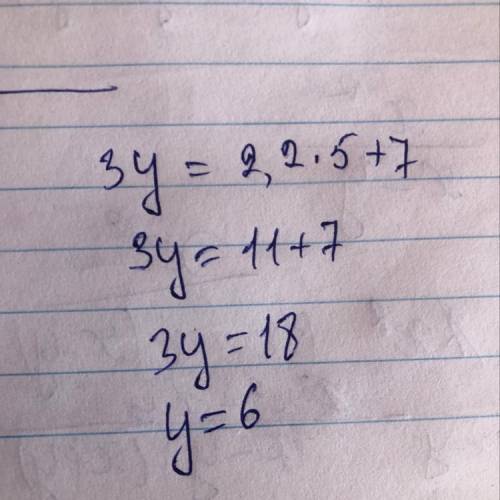 3y = 2,2·5+7
3y = 11+7
3y = 18
y = 6